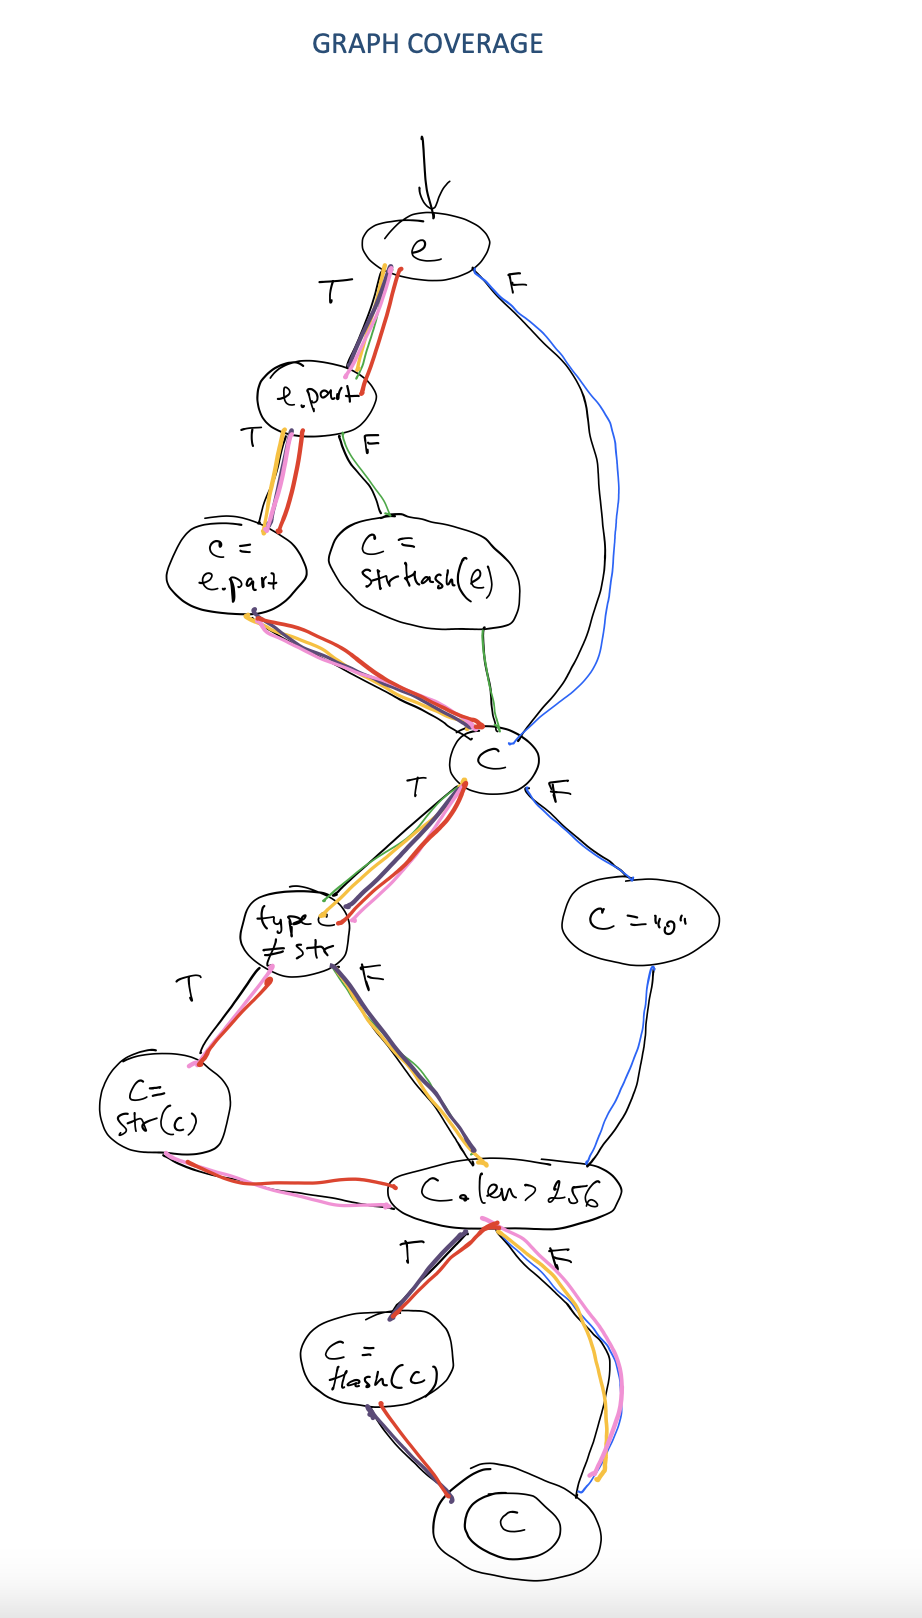 GRAPH COVERAGE
e
T
F
e.part
T
F
c =
e.part
C =
strHash(e)
C
T
F
type C
≠ str
C = "0"
T
F
C=
str(c)
C.len > 256
T
F
C =
Hash(c)
C